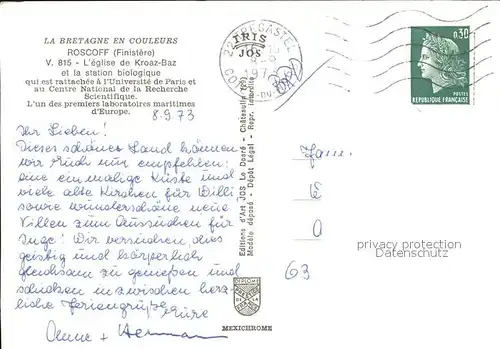 LA BRETAGNE EN COULEURS
ROSCOFF (Finistère)
V. 815 - L'église de Kroaz-Baz
et la station biologique
qui est rattachée à l'Université de Paris et
au Centre National de la Recherche
Scientifique.
L'un des premiers laboratoires maritimes
d'Europe.
8.9.73
Ihr Lieben!
Dieses schöne Land können
wir Euch nur empfehlen:
eine einmalige Küste und
viele alte Kirchen für Willi
sowie wunderschöne neue
Villen zum Aussuchen für
Inge! Wir versuchen dies
geistig und körperlich
gleichsam zu genießen und
schicken inzwischen herz-
liche Feriengrüße Eure
Anne + Hermann
IRIS
JOS
Editions d'Art JOS Le Doaré - Châteaulin
Modèle déposé - Dépôt Légal - Repr. interdite
MEXICHROME
0,30
POSTES
REPUBLIQUE FRANÇAISE
Fam.
63
privat gestempelt